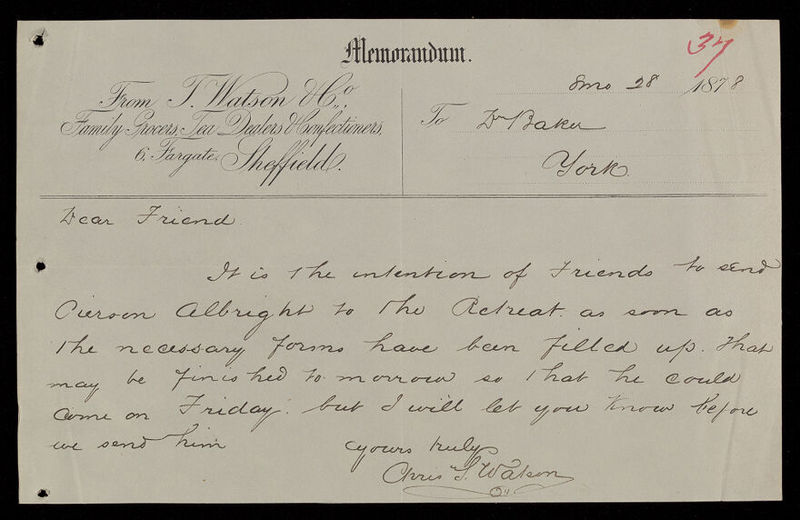 Memorandum.
37
8mo 28 1878
From T. Watson & Co.,
Family Grocers, Tea Dealers & Confectioners,
6, Fargate, Sheffield.
To Dr Baker
York
Dear Friend
It is the intention of Friends to send
Pierson Albright to the Retreat. as soon as
the necessary forms have been filled up. that
may be finished to-morrow so that he could
come on Friday. but I will let you know before
we send him
yours truly
Chris S. Watson